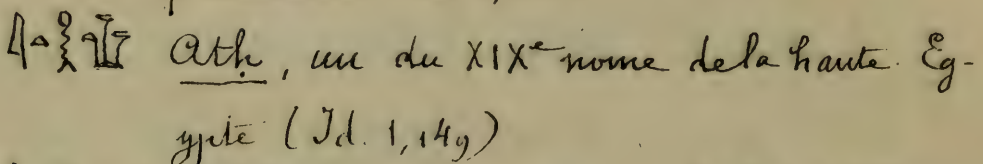 Atḥ, uu du XIXᵉ nome de la haute Eg-
ypte (Id. 1, 149)